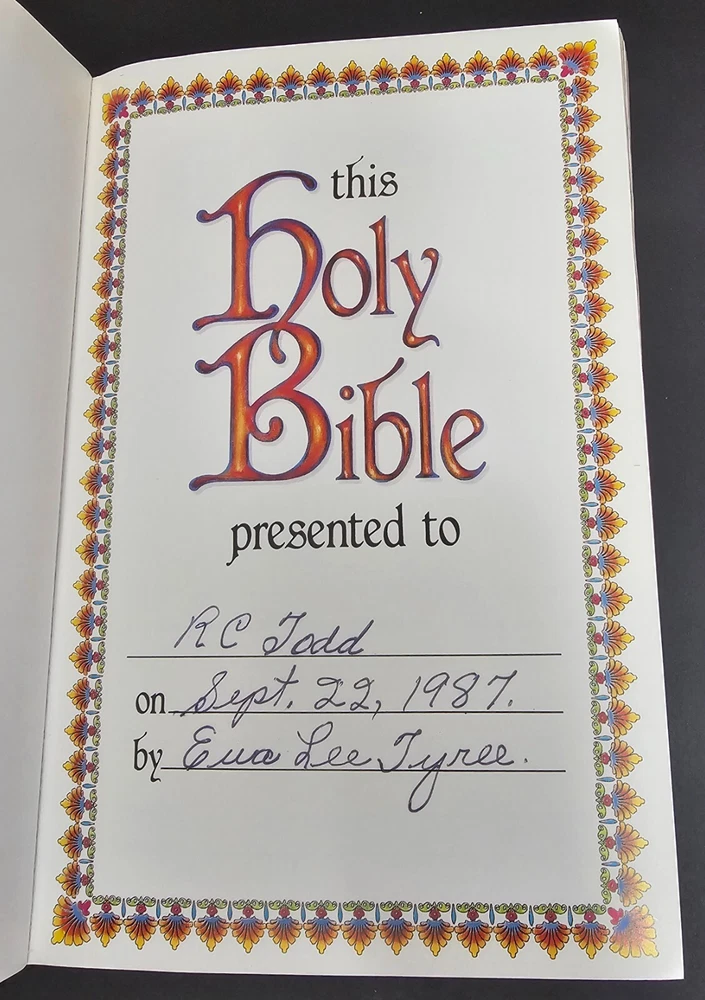 this
Holy
Bible
presented to
R C Todd
on Sept. 22, 1987.
by Eva Lee Tyree.